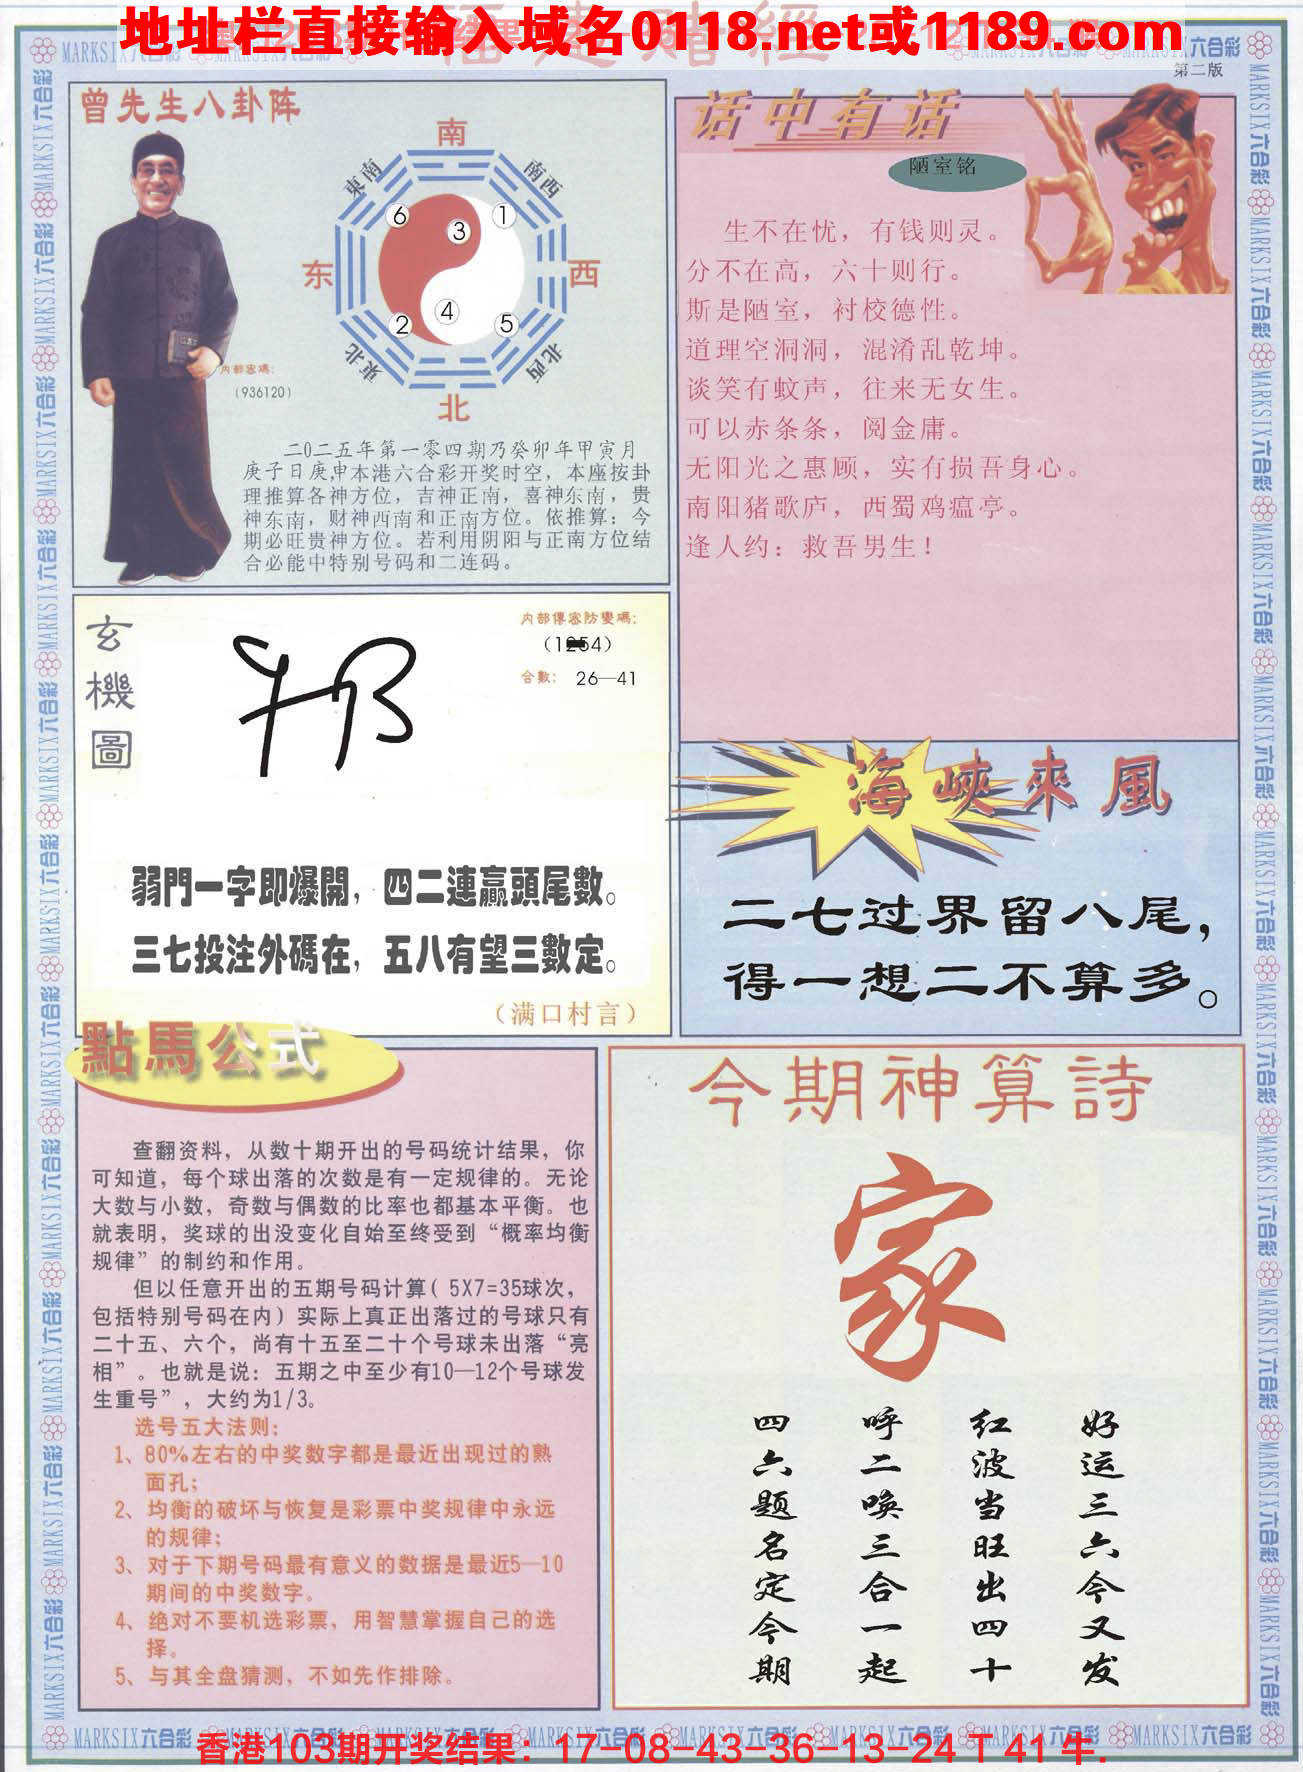 地址栏直接输入域名0118.net或1189.com
第二版
曾先生八卦阵
南
東南
南西
6
3
1
东
西
4
2
5
東北
北西
北
内部密碼:
(936120)
二0二五年第一零四期乃癸卯年甲寅月
庚子日庚申本港六合彩开奖时空,本座按卦
理推算各神方位,吉神正南,喜神东南,贵
神东南,财神西南和正南方位。依推算:今
期必旺贵神方位。若利用阴阳与正南方位结
合必能中特别号码和二连码。
话中有话
陋室铭
生不在忧,有钱则灵。
分不在高,六十则行。
斯是陋室,衬校德性。
道理空洞洞,混淆乱乾坤。
谈笑有蚊声,往来无女生。
可以赤条条,阅金庸。
无阳光之惠顾,实有损吾身心。
南阳猪歌庐,西蜀鸡瘟亭。
逢人约:救吾男生!
玄機圖
内部傳密防變碼:
合數: 26—41
弱門一字即爆開,四二連贏頭尾數。
三七投注外碼在,五八有望三數定。
(满口村言)
海峽來風
二七过界留八尾,
得一想二不算多。
點馬公式
查翻资料,从数十期开出的号码统计结果,你
可知道,每个球出落的次数是有一定规律的。无论
大数与小数,奇数与偶数的比率也都基本平衡。也
就表明,奖球的出没变化自始至终受到“概率均衡
规律”的制约和作用。
但以任意开出的五期号码计算( 5X7=35球次,
包括特别号码在内)实际上真正出落过的号球只有
二十五、六个,尚有十五至二十个号球未出落“亮
相”。也就是说:五期之中至少有10—12个号球发
生重号”,大约为1/3。
选号五大法则:
1、80%左右的中奖数字都是最近出现过的熟
面孔;
2、均衡的破坏与恢复是彩票中奖规律中永远
的规律;
3、对于下期号码最有意义的数据是最近5—10
期间的中奖数字。
4、绝对不要机选彩票,用智慧掌握自己的选
择。
5、与其全盘猜测,不如先作排除。
今期神算詩
家
好运三六今又发
红波当旺出四十
呼二唤三合一起
四六题名定今期
MARKSIX六合彩
香港103期开奖结果:17-08-43-36-13-24 T 41 牛.